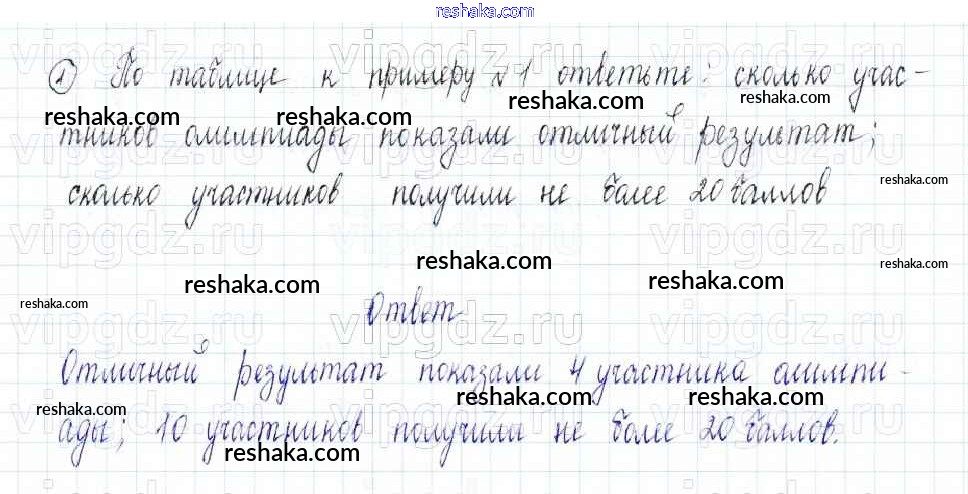 reshaka.com
① По таблице к примеру №1 ответьте: сколько учас-
тников олимпиады показали отличный результат;
сколько участников получили не более 20 баллов
Ответ
Отличный результат показали 4 участника олимпи-
ады; 10 участников получили не более 20 баллов.
vipgdz.ru
vipgdz.ru
vipgdz.ru
vipgdz.ru
vipgdz.ru
vipgdz.ru
vipgdz.ru
vipgdz.ru
vipgdz.ru
vipgdz.ru
vipgdz.ru
vipgdz.ru
reshaka.com
reshaka.com
reshaka.com
reshaka.com
reshaka.com
reshaka.com
reshaka.com
reshaka.com
reshaka.com
reshaka.com
reshaka.com
reshaka.com
reshaka.com